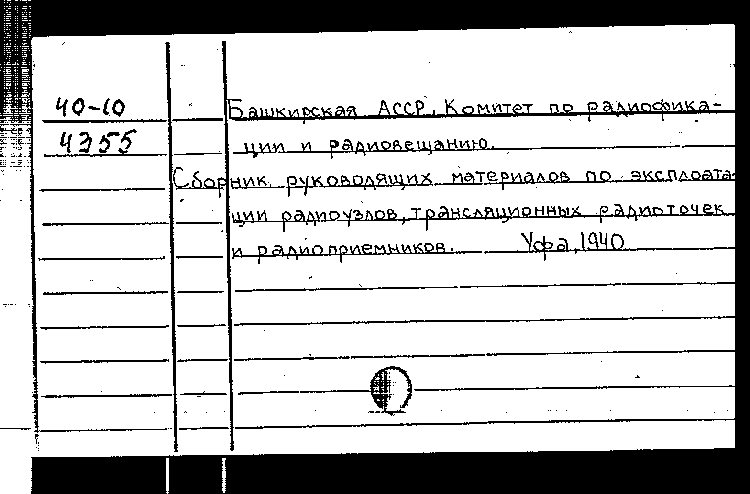 40-10 Башкирская АССР, Комитет по радиофика-
4355 ции и радиовещанию.
Сборник руководящих материалов по эксплоата-
ции радиоузлов, трансляционных радиоточек
и радиоприемников. Уфа, 1940